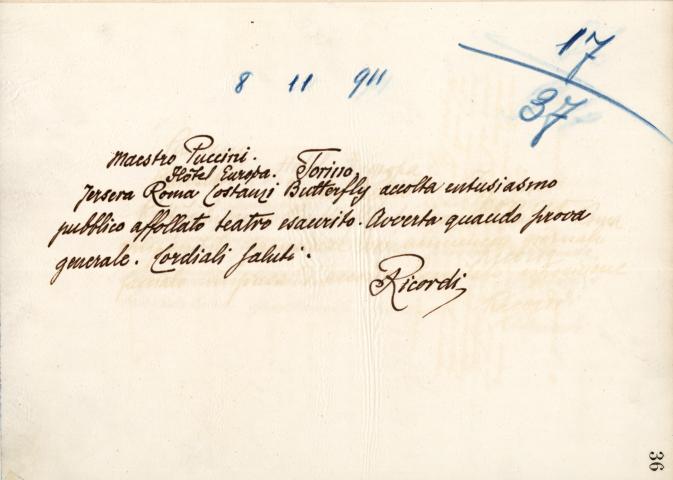 17
37
8 11 911
Maestro Puccini.
Hôtel Europa. Torino
Jersera Roma Costanzi Butterfly accolta entusiasmo
pubblico affollato teatro esaurito. Avverta quando prova
generale. Cordiali saluti.
Ricordi
36